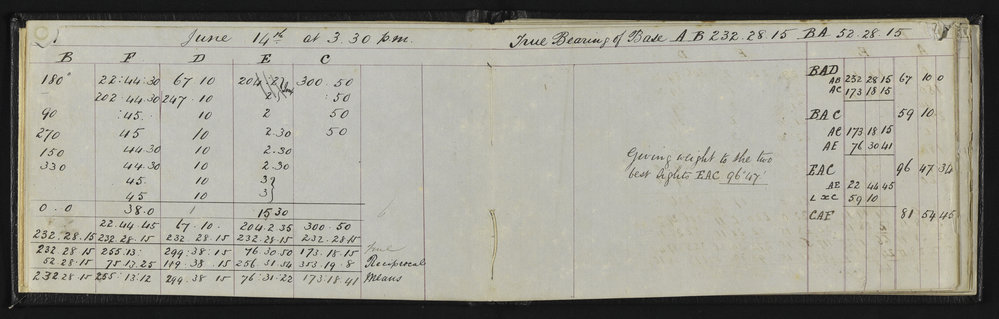 June 14th at 3.30 p.m.
B F D E C
180° 22.44.30 67.10 300.50
202 44.30 247.10 2 50
90 45 10 2 50
270 45 10 2.30 50
150 44.30 10 2.30
330 44.30 10 2.30
45. 10 3
45 10 3
0.0 38.0 1 15 30
22.44.45 67.10. 204.2.35 300.50
232.28.15 232.28.15 232 28.15 232.28.15 232.28.15
232.28.15 255.13. 299.38.15 76 30.50 173.18.15 True
52.28.15 75.13.25 119.38.15 256.31.54 353.19.8 Reciprocal
232 28 15 255.13.12 299.38 15 76.31.22 173.18.41 Means
True Bearing of Base AB 232.28.15 BA 52.28.15
BAD
AB 232 28 15 67 10 0
AC 173 18 15
BAC 59 10
AC 173 18 15
AE 76 30 41
Giving weight to the two
best lights EAC 96°47'
EAC 96 47 34
AE 22 44 45
59 10
CAF 81 54 45